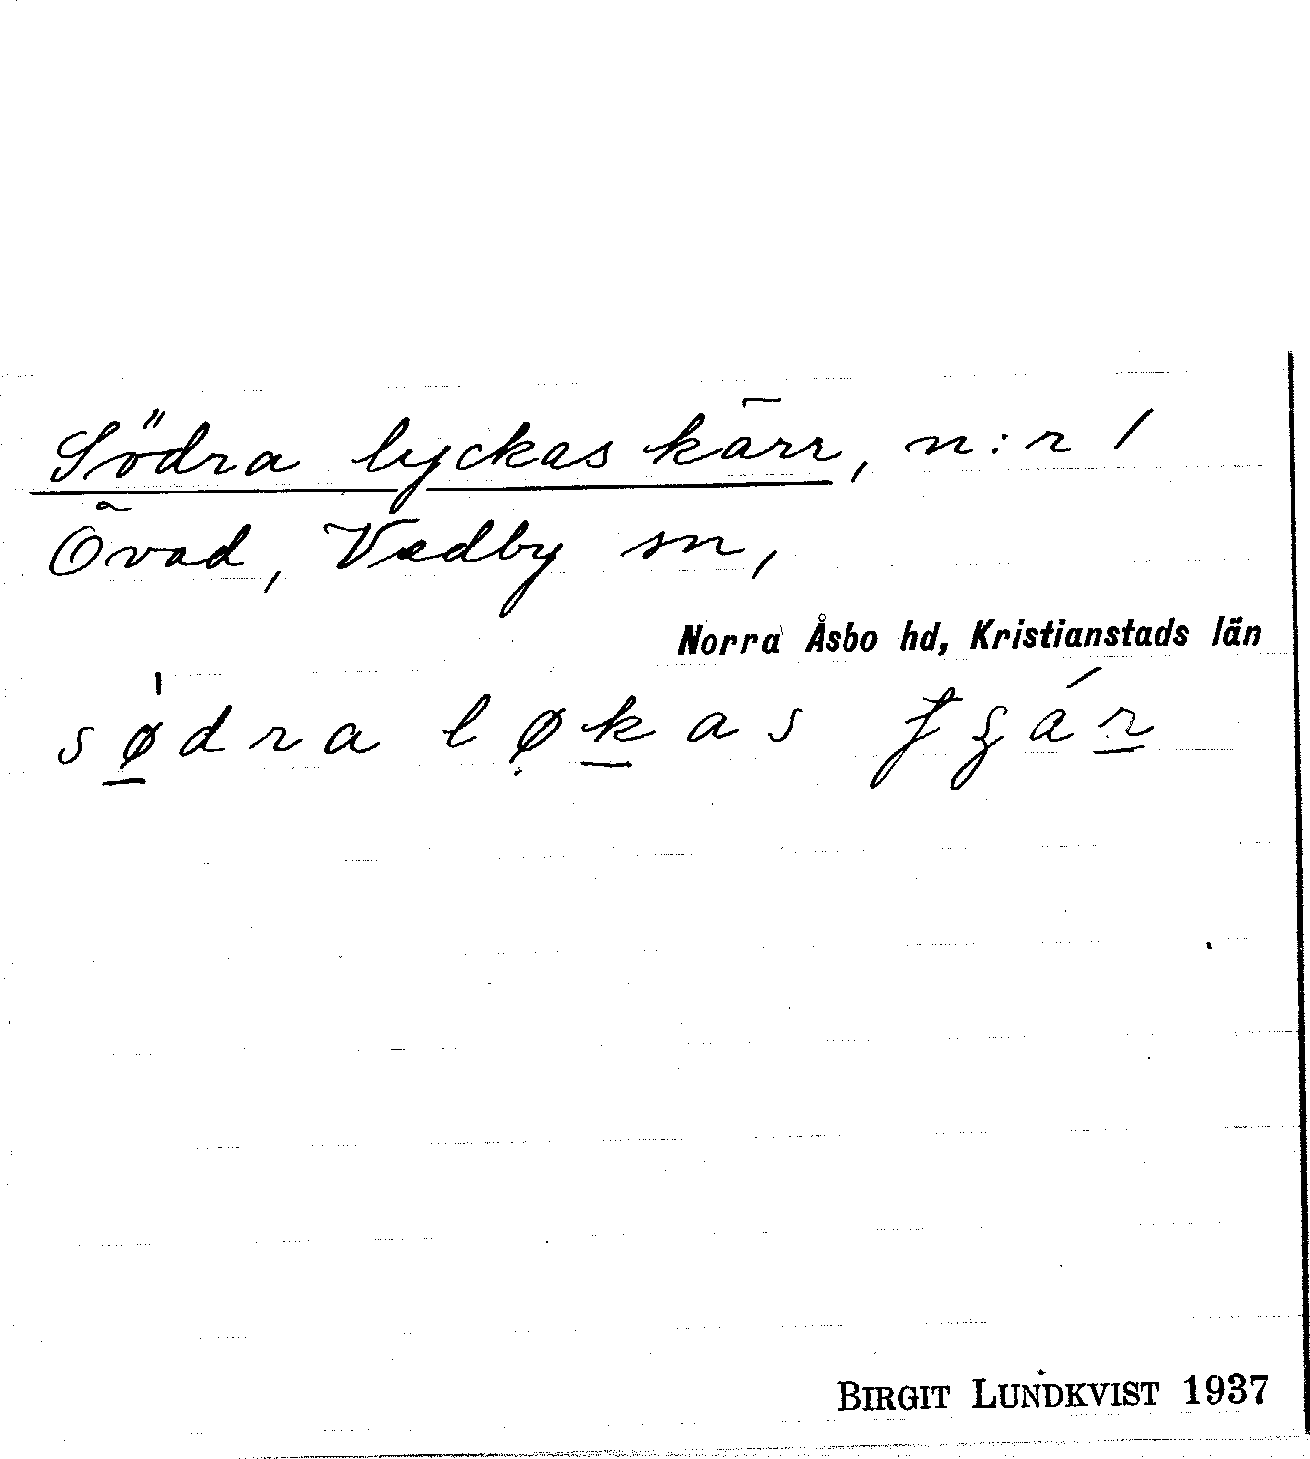 Södra lyckas kärr, n:r 1
Övad, Vedby sn,
Norra Åsbo hd, Kristianstads län
sø̠dra lø̣k̠as
BIRGIT LUNDKVIST 1937